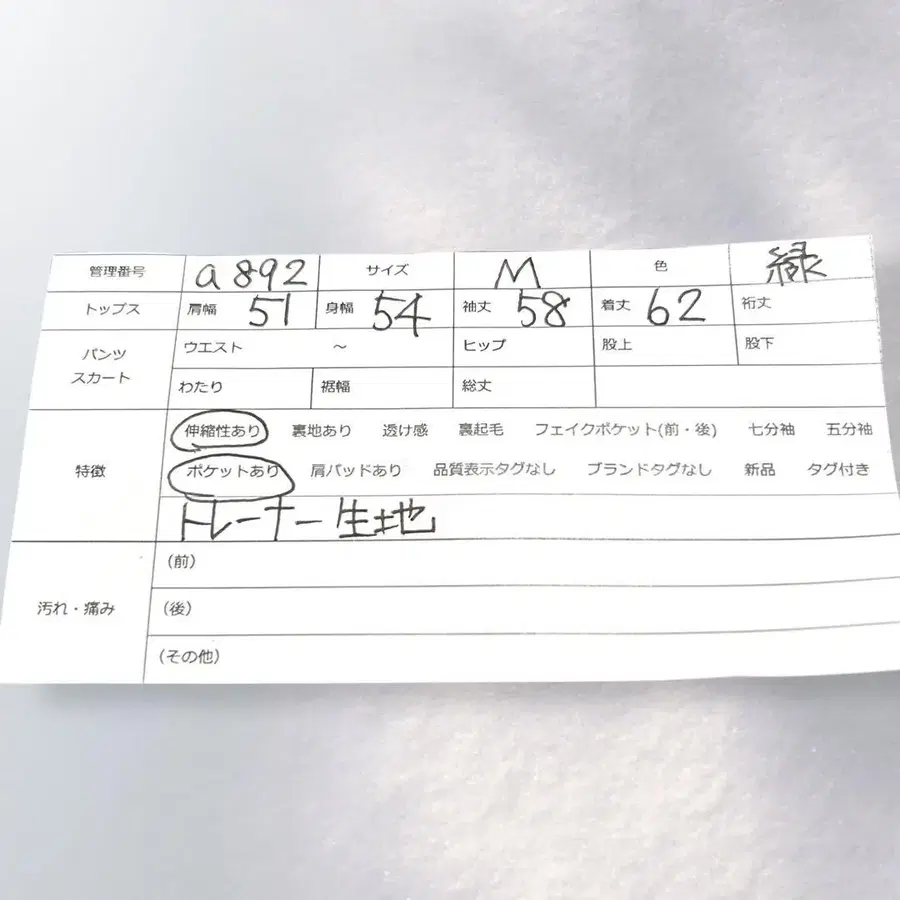 管理番号 a892 サイズ M 色 緑
トップス 肩幅 51 身幅 54 袖丈 58 着丈 62 裄丈
パンツ スカート ウエスト ～ ヒップ 股上 股下
わたり 裾幅 総丈
特徴 伸縮性あり 裏地あり 透け感 裏起毛 フェイクポケット(前・後) 七分袖 五分袖
ポケットあり 肩パッドあり 品質表示タグなし ブランドタグなし 新品 タグ付き
トレーナー生地
汚れ・痛み (前)
(後)
(その他)